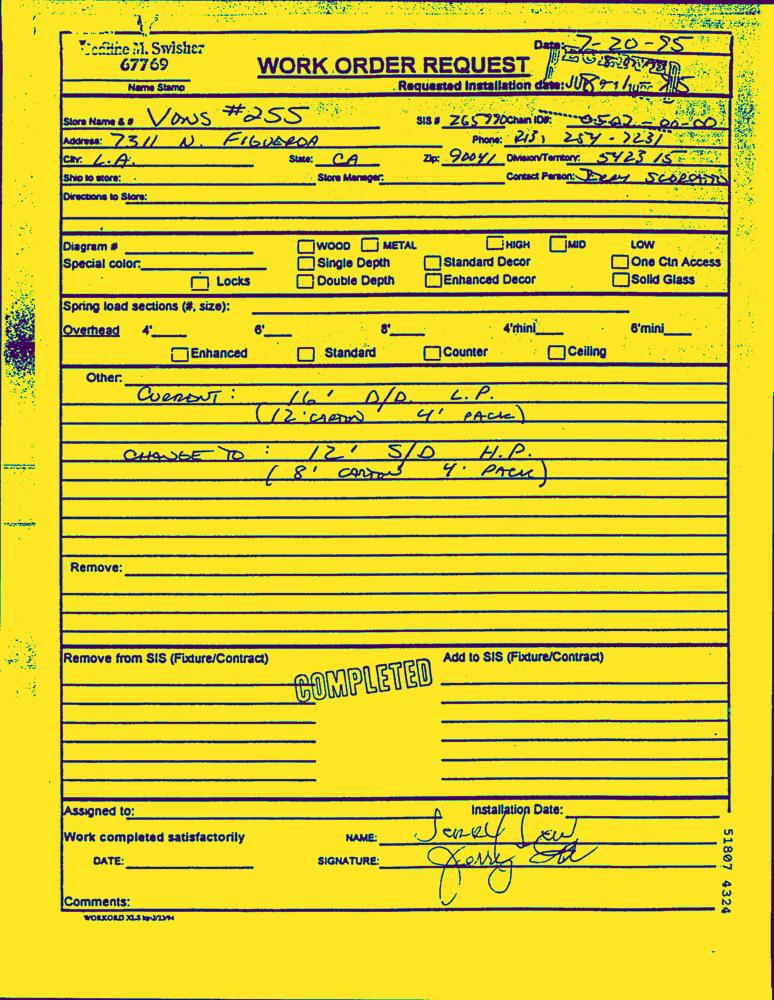 M. Swisher
67769
Name Stamp
Date: 7-20-95
WORK ORDER REQUEST
Requested Installation date:
Store Name & # VONS #255
SIS # 265790 Chain ID#:
Address: 7311 N. FIGUEROA
Phone: 213, 254-7231
City: L.A. State: CA Zip: 90041 Division/Territory: 5423 15
Ship to store: Store Manager: Contact Person: JERRY
Directions to Store:
Diagram # WOOD METAL HIGH MID LOW
Special color: Single Depth Standard Decor One Ctn Access
Locks Double Depth Enhanced Decor Solid Glass
Spring load sections (#, size):
Overhead 4' 6' 8' 4'mini 6'mini
Enhanced Standard Counter Ceiling
Other:
CURRENT : 16' D/D. L.P.
(12' CARTON 4' PACK)
CHANGE TO : 12' S/D H.P.
(8' CARTON 4' PACK)
Remove:
Remove from SIS (Fixture/Contract) Add to SIS (Fixture/Contract)
COMPLETED
Assigned to: Installation Date:
Work completed satisfactorily NAME:
DATE: SIGNATURE:
Comments:
51807 4324